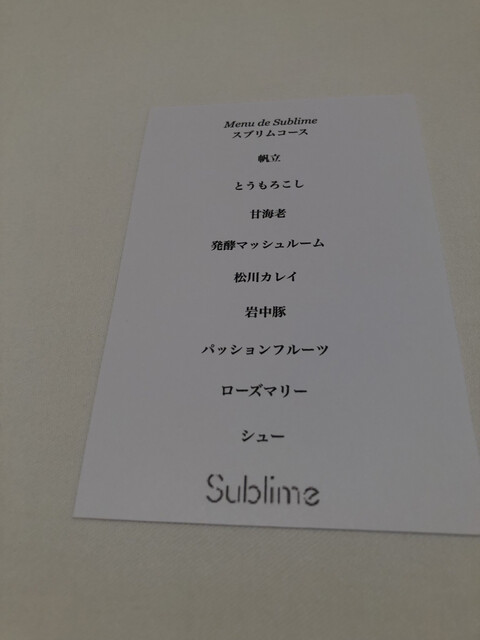 Menu de Sublime
スブリムコース
帆立
とうもろこし
甘海老
発酵マッシュルーム
松川カレイ
岩中豚
パッションフルーツ
ローズマリー
シュー
Sublime